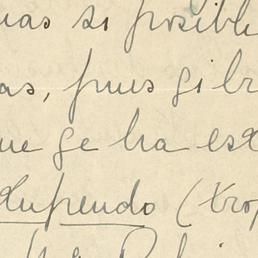 uas si posible
as, pues si br
ue se ha est
stupendo (tro